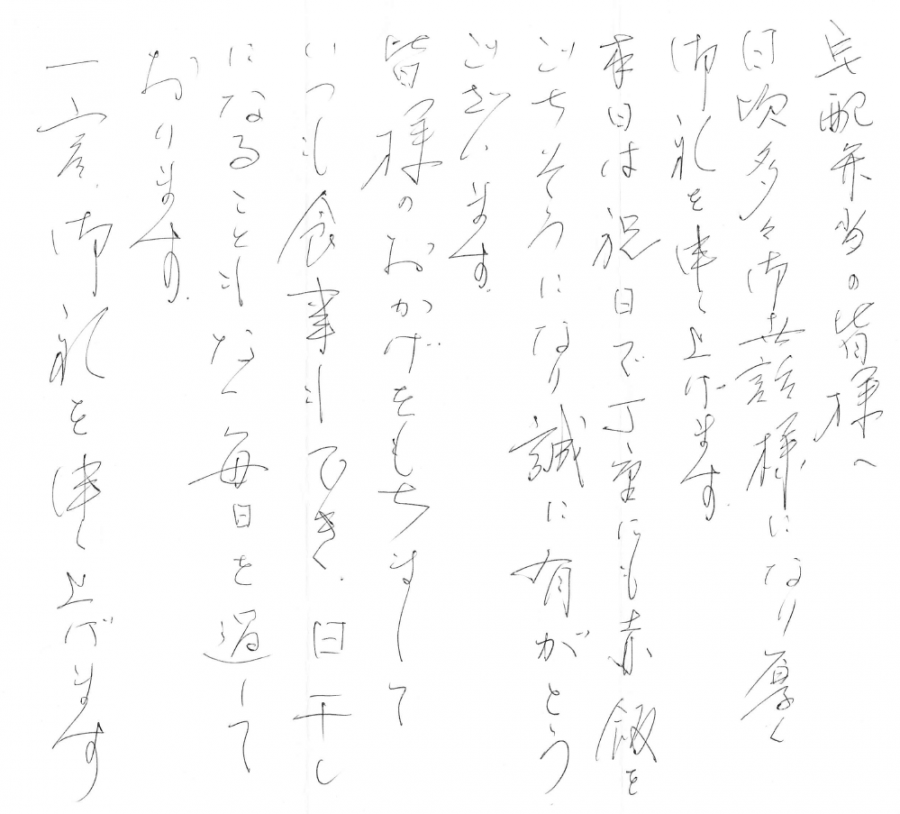 宅配弁当の皆様へ
日頃多々御世話様になり厚く
御礼を申し上げます。
本日は祝日で丁重にも赤飯を
ごちそうになり誠に有がとう
ございます。
皆様のおかげをもちまして
いつも食事もでき、日干し
になることもなく毎日を過して
おります。
一言、御礼を申し上げます